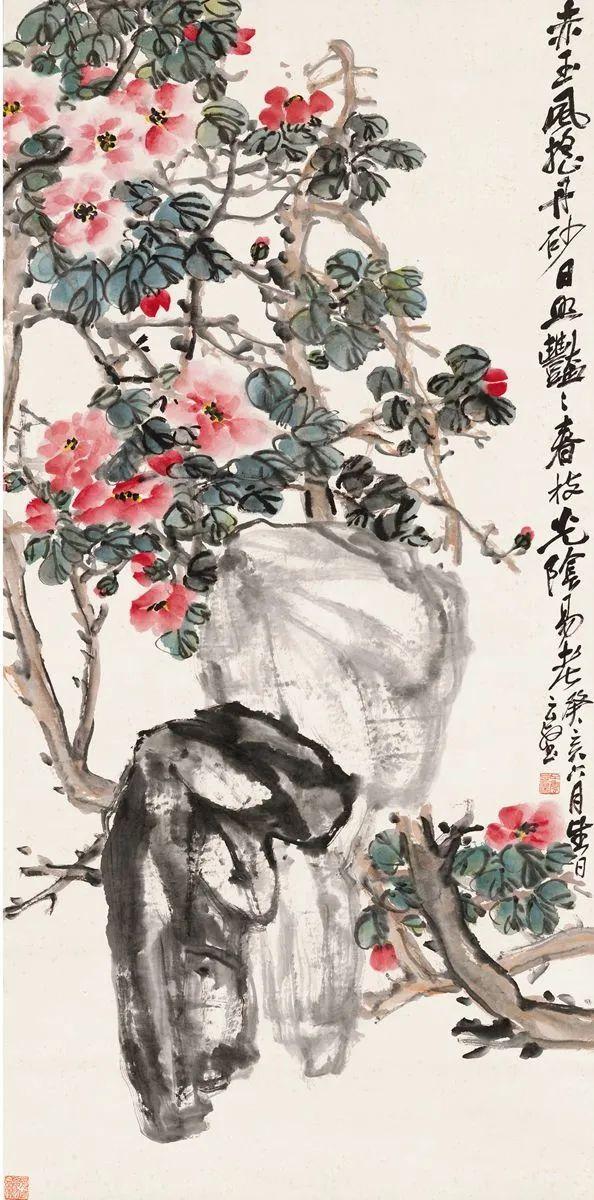 赤玉風搖丹砂日照豔〻春枝光陰易老癸亥六月日
云壑